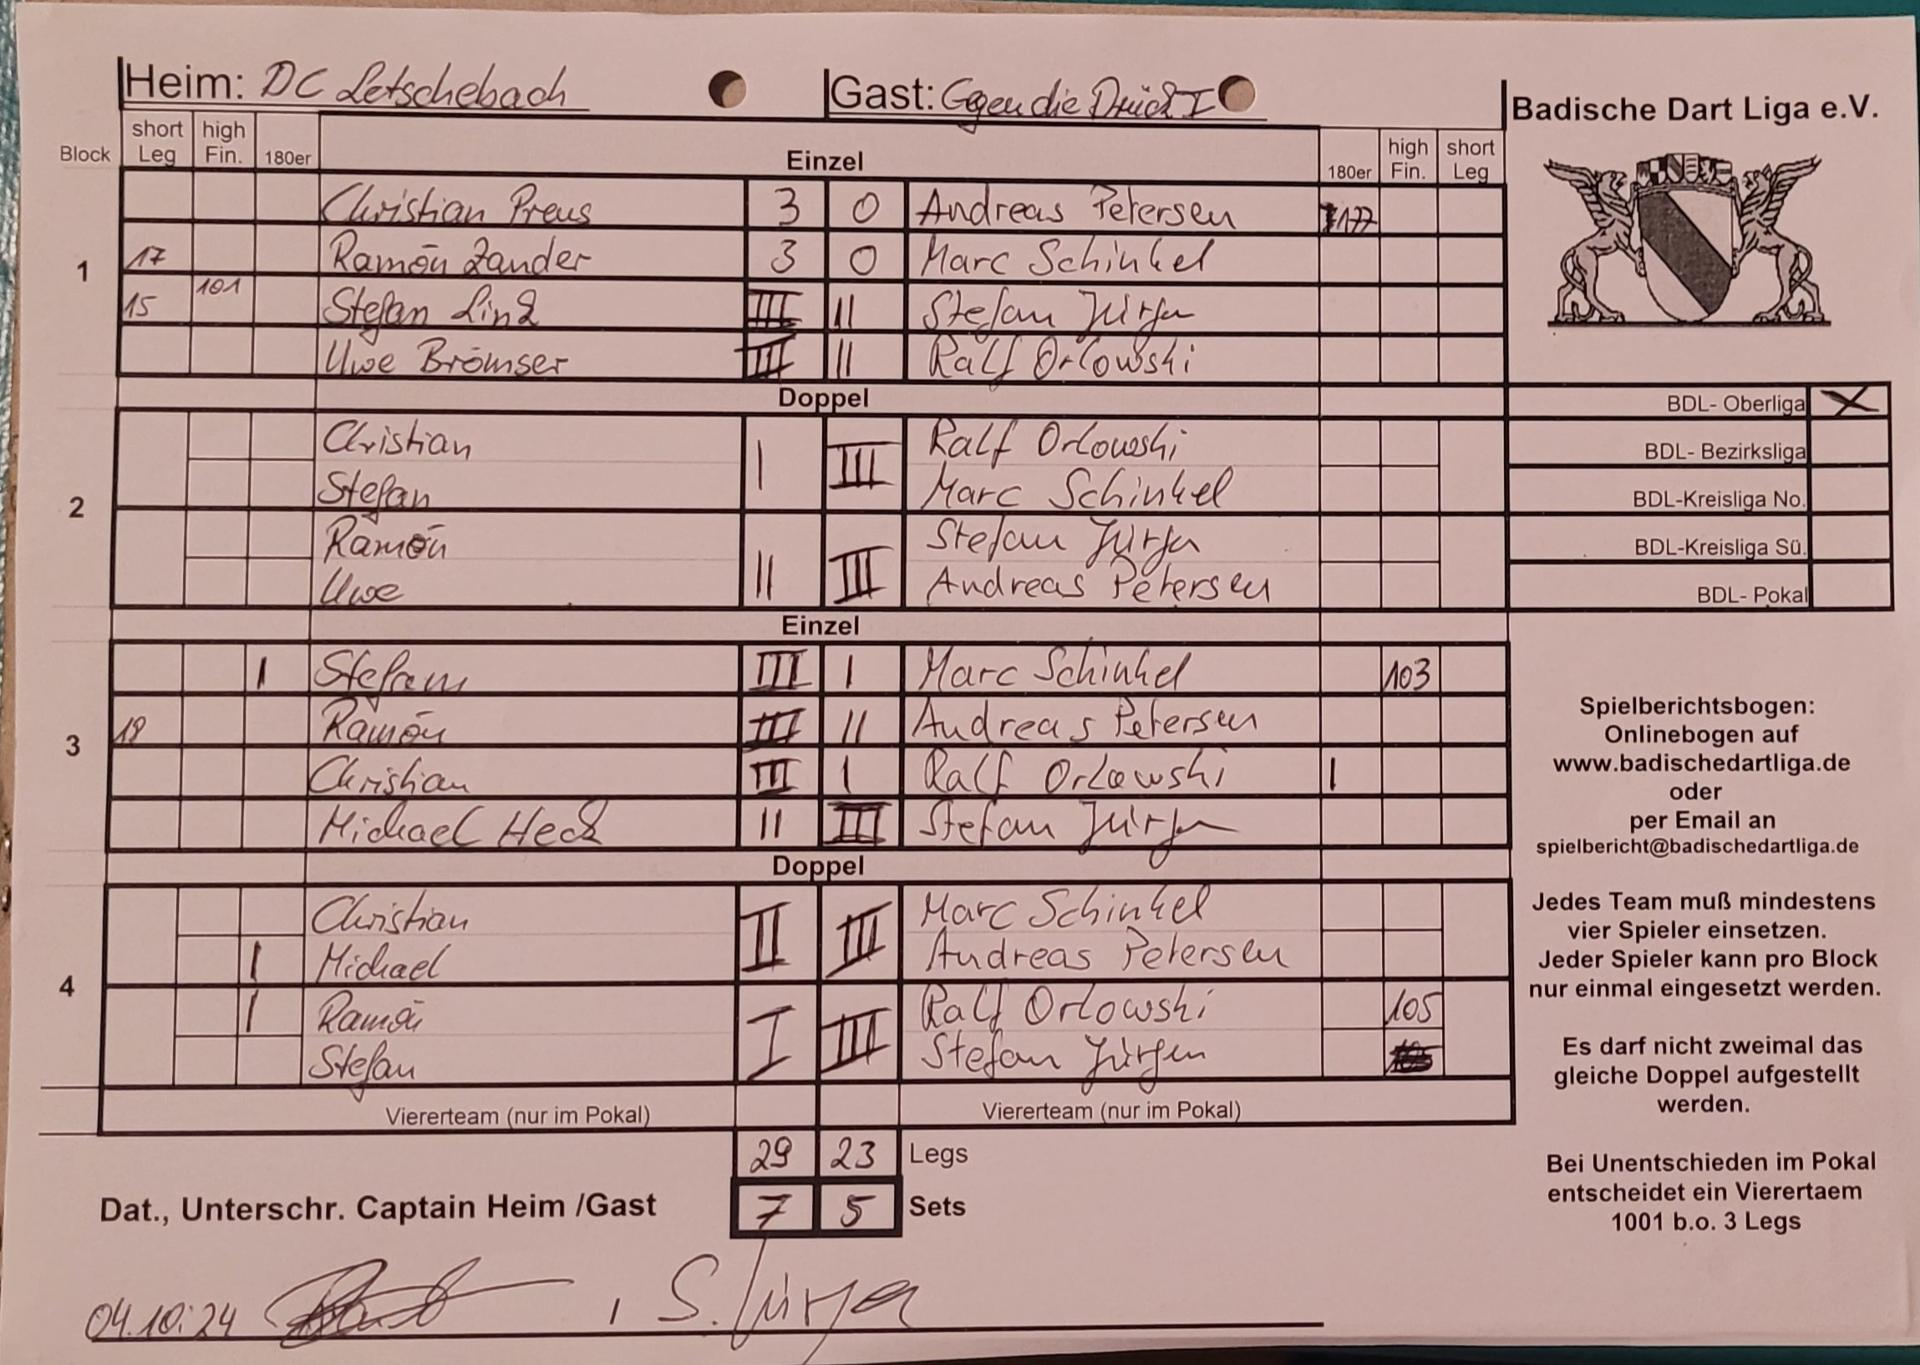 Heim: DC Letschebach Gast: Gegen die Drück I
Badische Dart Liga e.V.
Block short Leg high Fin. 180er Einzel 180er high Fin. short Leg
1
Christian Preus 3 0 Andreas Petersen 177
17 Ramón Zander 3 0 Marc Schinkel
15 101 Stefan Link III II Stefan Jürgen
Uwe Brömser III II Ralf Orlowski
Doppel
2
Christian I III Ralf Orlowski
Stefan Marc Schinkel
Ramón II III Stefan Jürgen
Uwe Andreas Petersen
Einzel
3
I Stefan III I Marc Schinkel 103
18 Ramón III II Andreas Petersen
Christian III I Ralf Orlowski I
Michael Heck II III Stefan Jürgen
Doppel
4
Christian II III Marc Schinkel
I Michael Andreas Petersen
I Ramón I III Ralf Orlowski 105
Stefan Stefan Jürgen
Viererteam (nur im Pokal) Viererteam (nur im Pokal)
29 23 Legs
7 5 Sets
Dat., Unterschr. Captain Heim /Gast
04.10.24 , S. Jürgen
BDL- Oberliga X
BDL- Bezirksliga
BDL-Kreisliga No.
BDL-Kreisliga Sü.
BDL- Pokal
Spielberichtsbogen:
Onlinebogen auf
www.badischedartliga.de
oder
per Email an
spielbericht@badischedartliga.de
Jedes Team muß mindestens
vier Spieler einsetzen.
Jeder Spieler kann pro Block
nur einmal eingesetzt werden.
Es darf nicht zweimal das
gleiche Doppel aufgestellt
werden.
Bei Unentschieden im Pokal
entscheidet ein Vierertaem
1001 b.o. 3 Legs